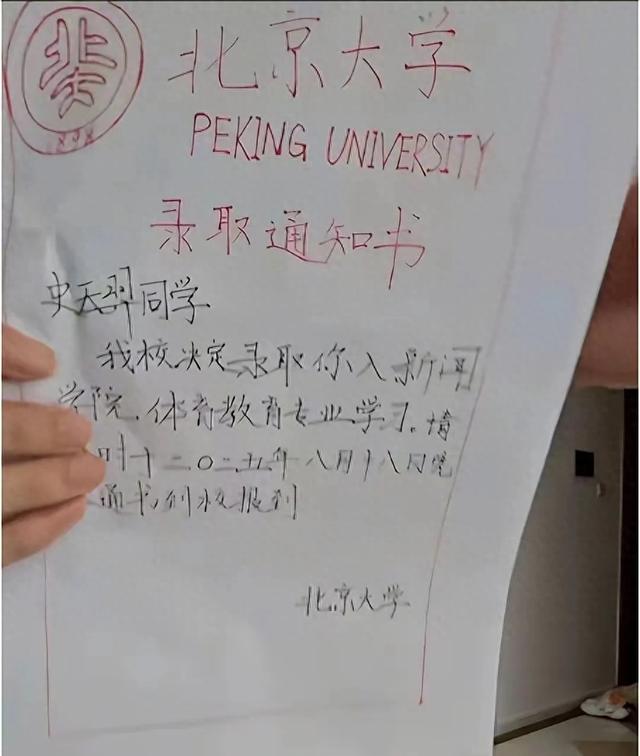 1898
北京大学
PEKING UNIVERSITY
录取通知书
史天羿同学
我校决定录取你入新闻
学院.体育教育专业学习.请
时于二〇二五年八月十八日凭
通书到校报到
北京大学